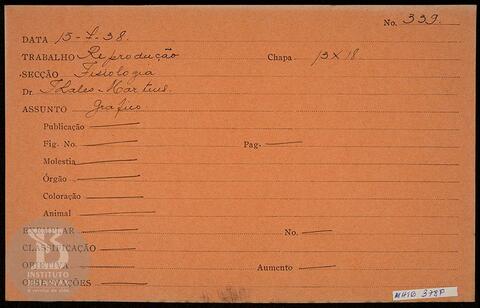 No. 339.
DATA 15-7-38.
TRABALHO Reprodução Chapa 13 x 18
SECÇÃO Fisiologia
Dr. Thales Martins.
ASSUNTO Grafico
Publicação
Fig. No. Pag.
Molestia
Órgão
Coloração
Animal
EXEMPLAR No.
CLASSIFICAÇÃO
Aumento
OBSERVAÇÕES
INSTITUTO
A serviço da vida